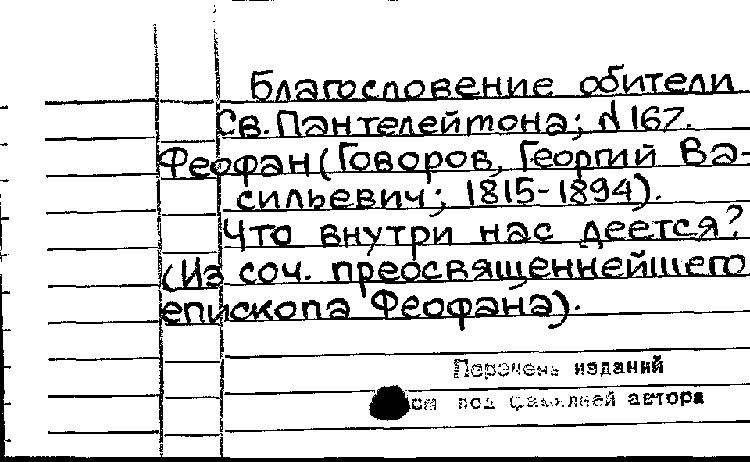 Благословение обители
Св. Пантелеймона; № 167.
Феофан (Говоров, Георгий Ва-
сильевич; 1815-1894).
Что внутри нас деется?
(Из соч. преосвященнейшего
епископа Феофана).
Перечень изданий
см под фамилией автора